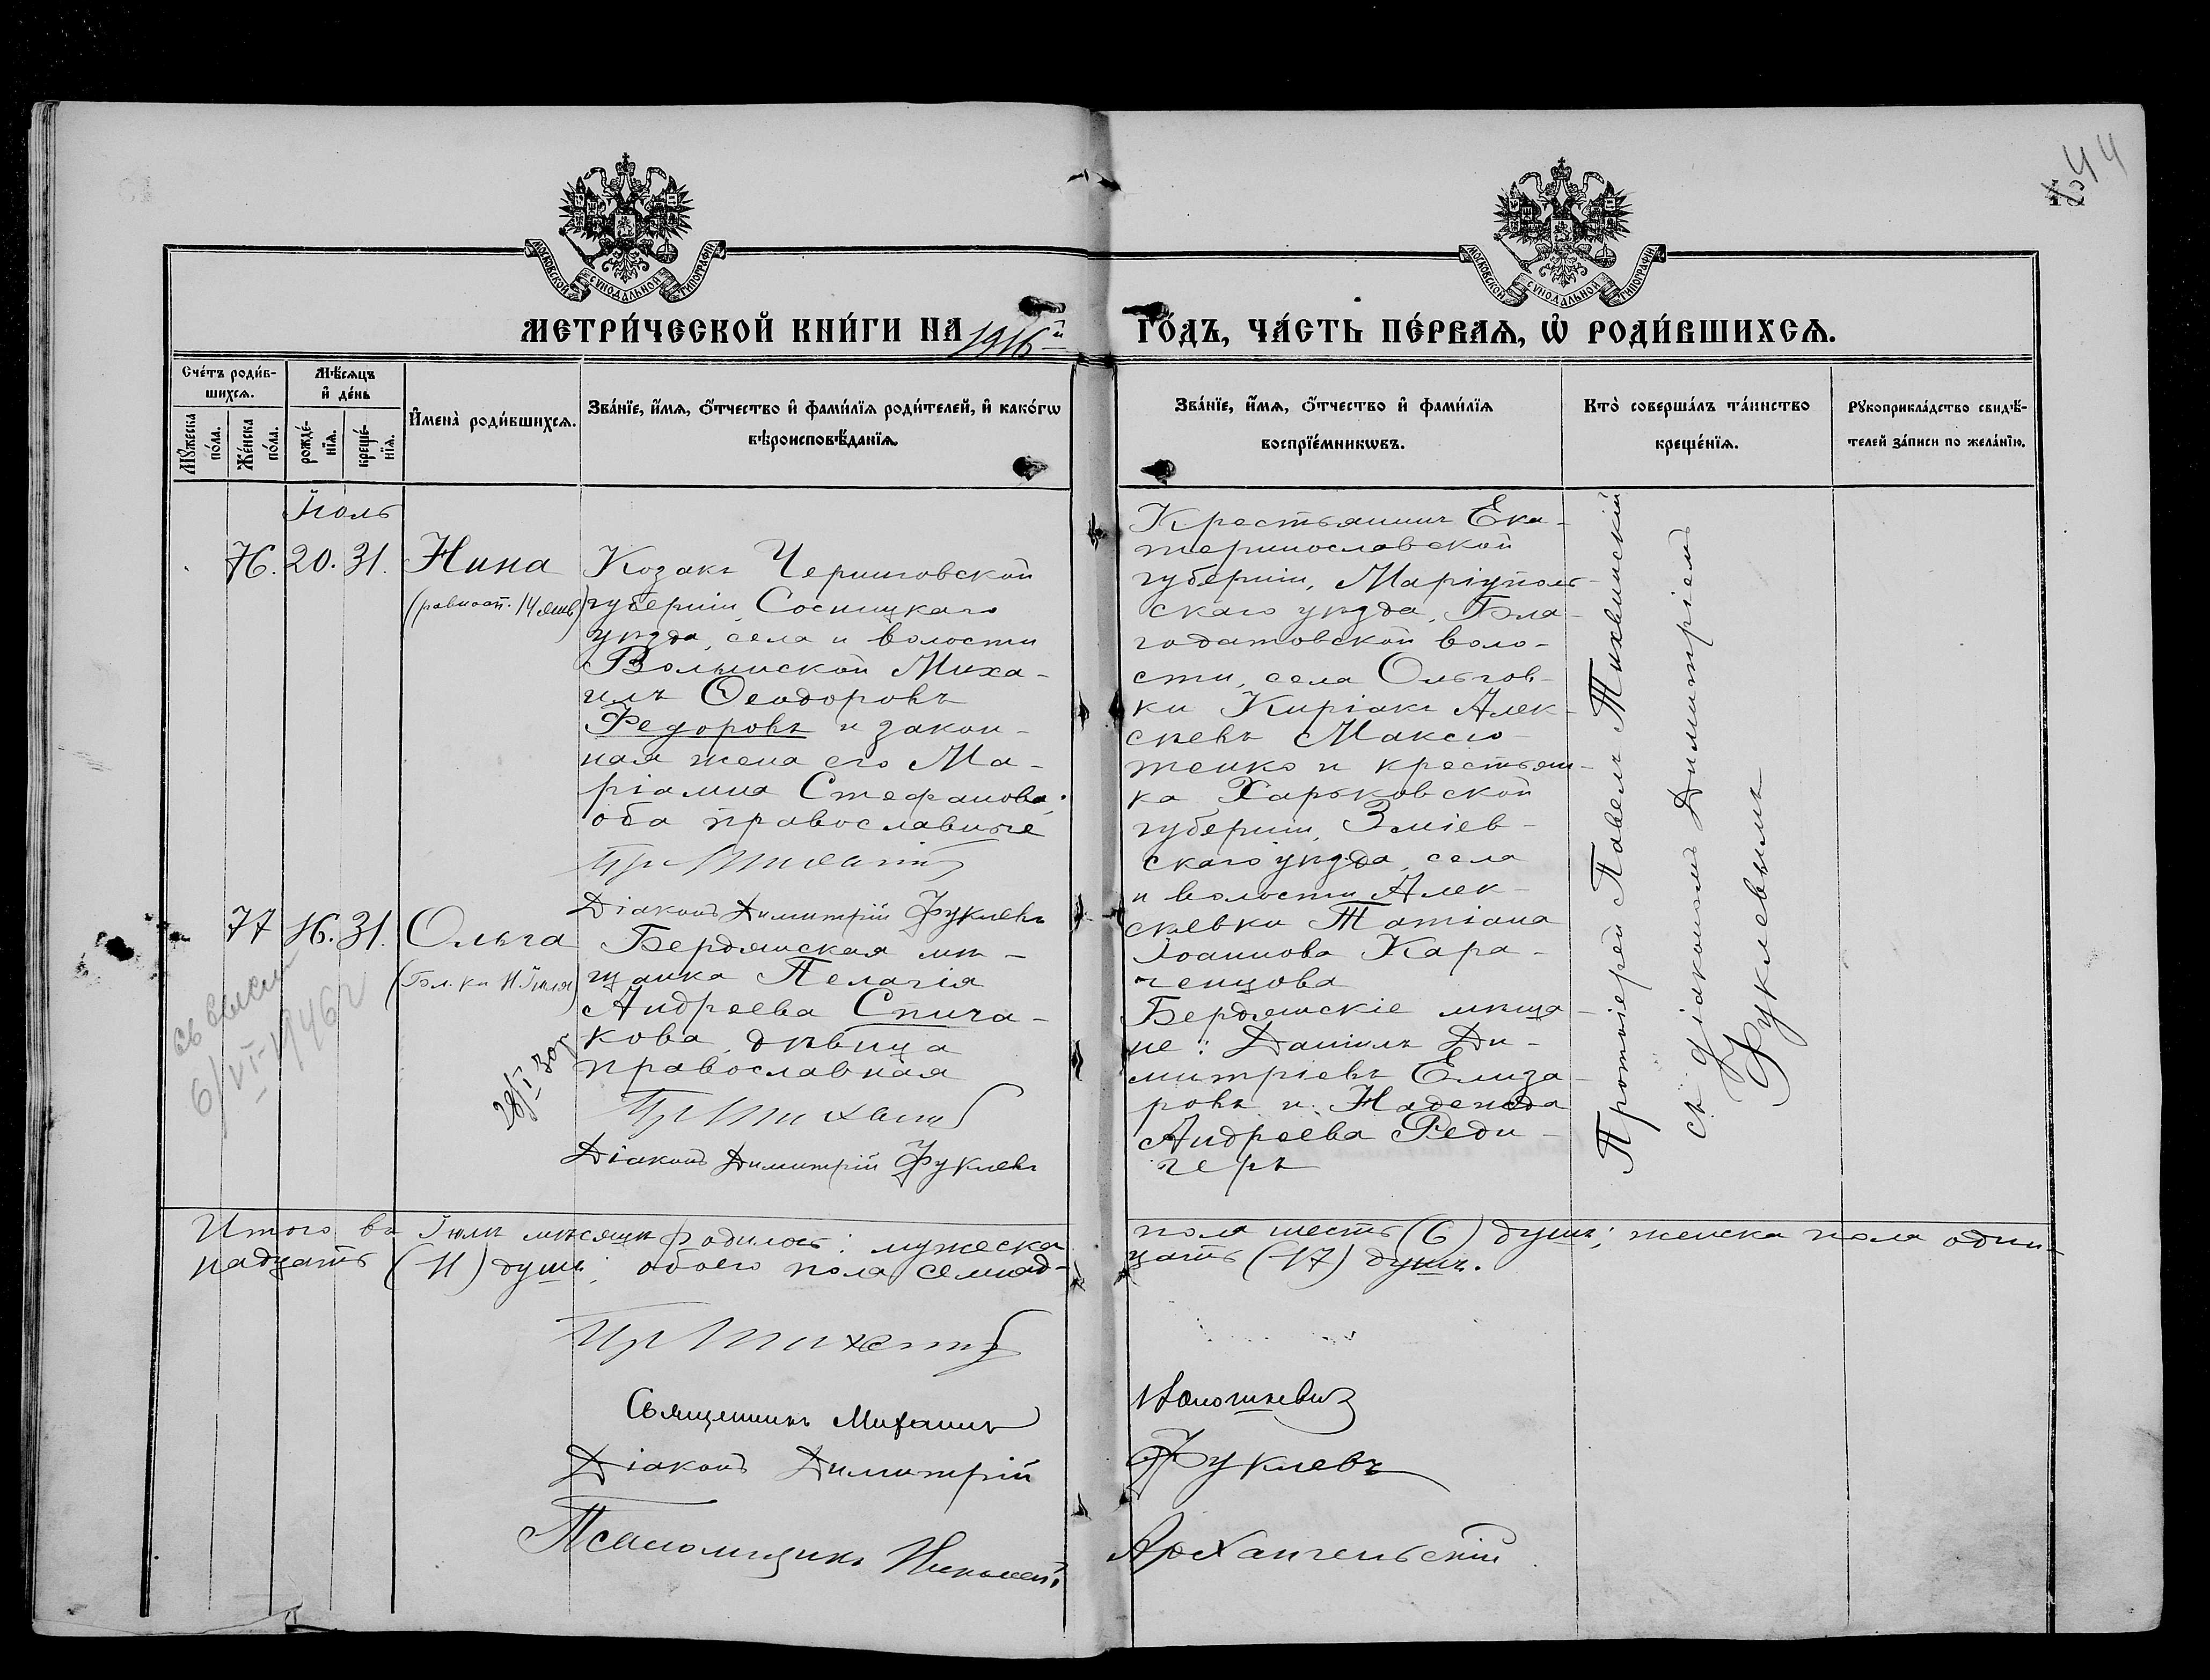 44
МОСКОВСКОЙ СѴНОДАЛЬНОЙ ТИПОГРАФІИ
МОСКОВСКОЙ СѴНОДАЛЬНОЙ ТИПОГРАФІИ
МЕТРИ́ЧЕСКОЙ КНИ́ГИ НА 1916й ГО́ДЪ, ЧА́СТЬ ПЕ́РВАѦ, Ѽ РОДИ́ВШИХСѦ.
Сче́тъ роди́в-
шихсѧ.
Мꙋ́жеска по́ла.
Же́нска по́ла.
Мѣ́сѧцъ
и҆ де́нь
рожде́-
нїѧ.
креще́-
нїѧ.
И҆мена̀ роди́вшихсѧ.
Зва́нїе, и҆́мѧ, ѻ҆́тчество и҆ фами́лїѧ роди́телей, и҆ како́гѡ
вѣроисповѣ́данїѧ.
Зва́нїе, и҆́мѧ, ѻ҆́тчество и҆ фами́лїѧ
воспрїе́мникѡвъ.
Кто̀ соверша́лъ та́инство
креще́нїѧ.
Рꙋкоприкла́дство свидѣ́-
телей за́писи по жела́нїю.
Іюль
76. 20. 31. Нина
(равноап. 14 янв)
Козакъ Черниговской
губерніи, Сосницкаго
уѣзда, села и волости
Волынской Миха-
илъ Ѳеодоровъ
Федоровъ и закон-
ная жена его Ма-
ріамна Стефанова;
оба православные
Діаконъ Димитрій Фуклевъ
Крестьянинъ Ека-
теринославской
губерніи, Маріуполь-
скаго уѣзда, Бла-
годатовской воло-
сти, села Ольгов-
ки Киріакъ Алек-
сѣевъ Максю-
тенко и крестьян-
ка Харьковской
губерніи, Зміев-
скаго уѣзда, села
и волости Алек-
сѣевки Татіана
Іоаннова Кара-
ченцова
77 16. 31. Ольга
(Бл. кн. 11 Іюля)
Бердянская мѣ-
щанка Пелагія
Андреева Спича-
кова, дѣвица
православная
Діаконъ Димитрій Фуклевъ
Бердянскіе мѣща-
не: Даніилъ Ди-
митріевъ Елиза-
ровъ и Надежда
Андреева Реди-
геръ
Протоіерей Павелъ Тихвинскій
съ діакономъ Димитріемъ
Фуклевымъ
6/VI-1946 г
28/I 30г
Итого въ Іюлѣ мѣсяцѣ родилось: мужеска пола шесть (6) душъ; женска пола один-
надцать (11) душъ; обоего пола семнад-цать (17) душъ.
Священникъ Михаилъ
Діаконъ Димитрій Фуклевъ
Псаломщикъ Николай Архангельскій